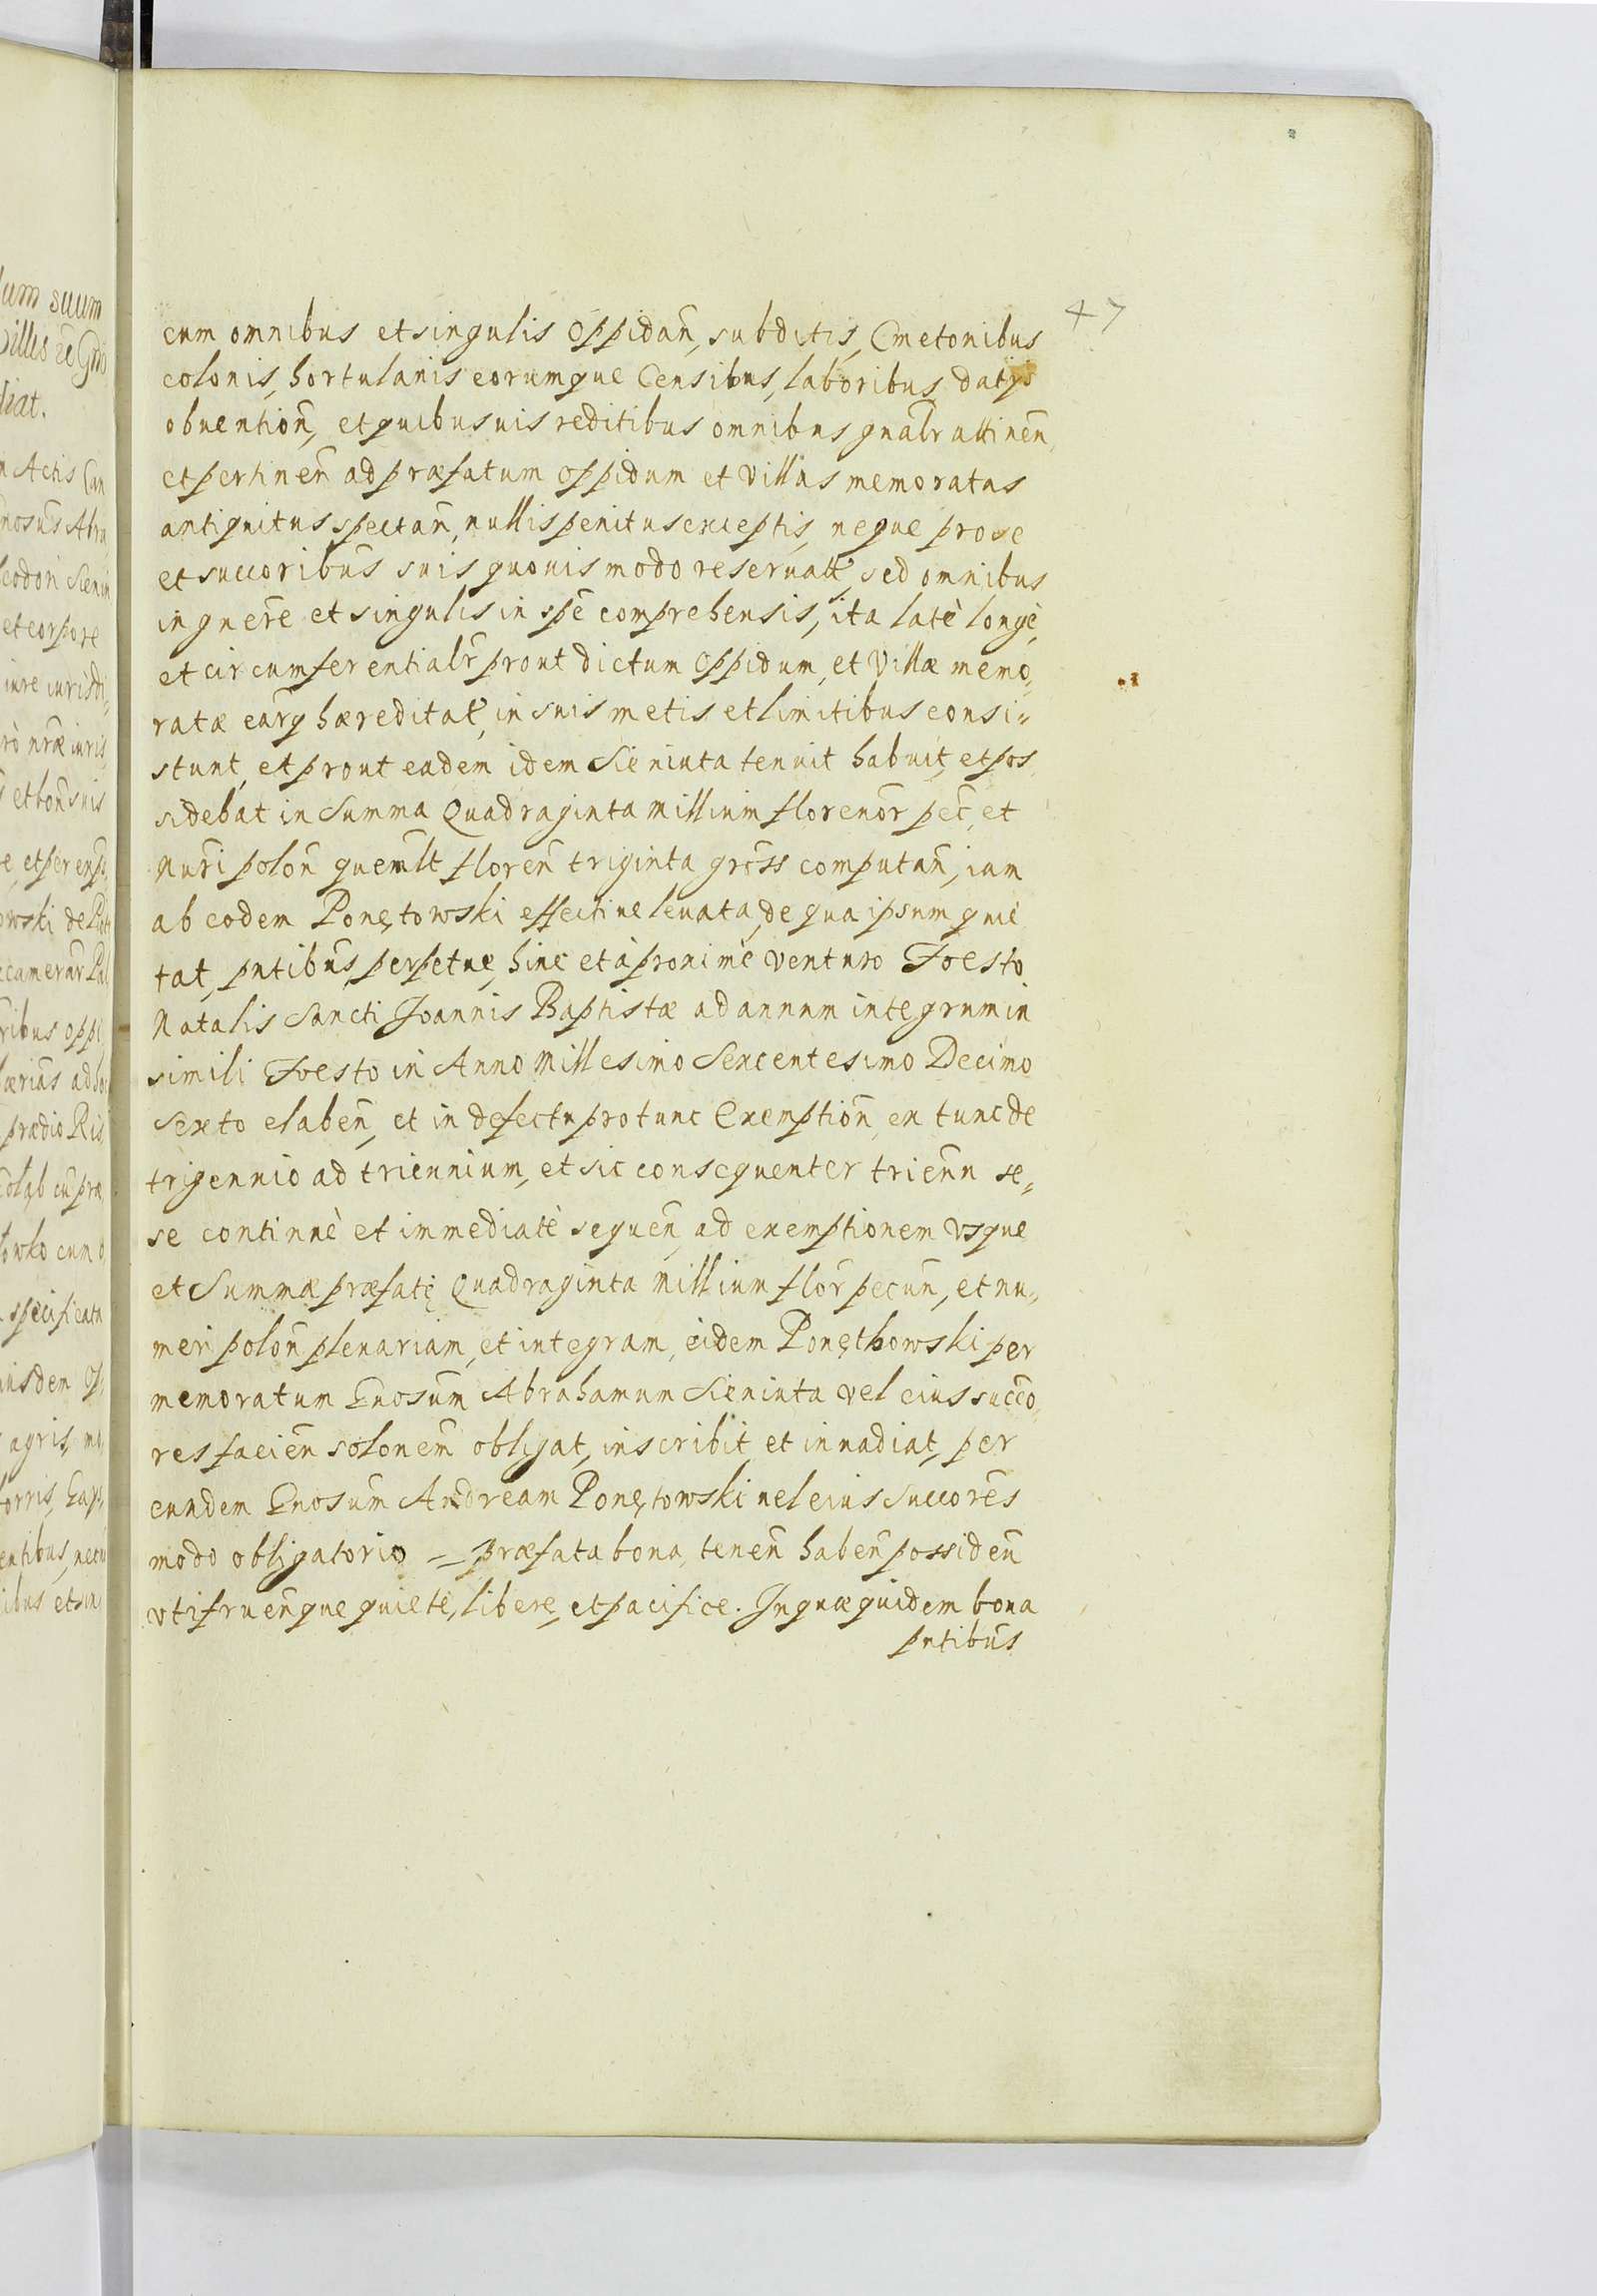 47
cum omnibus et singulis Oppidan̄, subditis, Cmetonibus
colonis, hortulanis eorumque Censibus, laboribus datijs
obuention̄, et quibusuis reditibus omnibus gnalr̄ attinen̄
et pertinen̄ ad præfatum oppidum et Villas memoratas
antiquitus spectan̄, nullis penitus exceptis, neque pro se
et succoribus̄ suis quouis modo reseruatt̄, sed omnibus
in gnere̅ et singulis in spē comprehensis, ita latè longè,
et circumferentialr̄ prout dictum Oppidum, et Villæ memo„
ratæ earq̨ hæreditat̄, in suis metis et limitibus consi„
stunt, et prout eadem idem Sieniuta tenuit habuit, et pos
sidebat in Summa Quadraginta Millium florenor̄ pec̄, et
Nuri̅ polon̄ quemlt̄ floren̄ triginta gross̄ computan̄, iam
ab eodem Ponętowski effectiue leuata, de qua ipsum quie
tat, pntibus̄, perpetue, hinc et à proximè venturo Foesto
Natalis Sancti Joannis Baptistæ ad annum integrum in
simili Foesto in Anno Millesimo Sexcentesimo Decimo
Sexto elaben̄, et in defectu pro tunc Exemption̄ ex tunc de
trigennio ad triennium, et sic consequenter trienn̄ se„
se continuè et immediatè sequen̄ ad exemptionem vsque
et Summæ præfatę Quadraginta Millium flor̄ pecun̄, et nu„
meri polon̄ plenariam, et integram, eidem Ponęthowski per
memoratum Gnosum̄ Abrahamum Sieniuta vel eius succo̅
res facien̄ solonem̄ obligat, inscribit et inuadiat, per
eundem Gnosum̄ Andream Ponętowski uel eius succores̄
modo obligatorio = præfata bona, tenen̄ haben̄ possiden̄
vtifruen̄que quiete, libere, et pacifice. In quæ quidem bona
pntibus̄